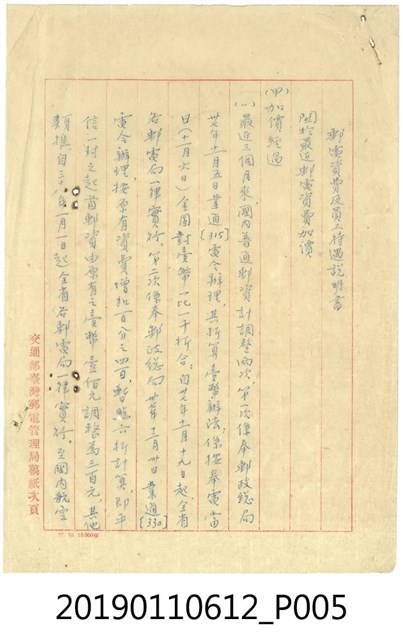 郵電資費及員工待遇說明書
關於最近郵電資費加價
(甲)加價經過
(一)最近三個月來,國內普通郵資計調整兩次,第一次係奉郵政總局
卅七年十一月五日業通(315)電令辦理,其折算臺幣辦法,係按奉電當
日(十一月六日)金圓對臺幣一比一千折合,自卅七年十一月十九日起全省
各郵電局一律實行,第二次係奉郵政總局卅七年十二月卅日業通(330)
電令辦理,按原有資費增加百分之四百,暫照六折計算,即平
信一封之起首郵資由原有之臺幣壹佰元調整為三百元,其他
類推,自三十八年一月一日起全省各郵電局一律實行。至國內航空
交通部臺灣郵電管理局稿紙次頁
20190110612_P005